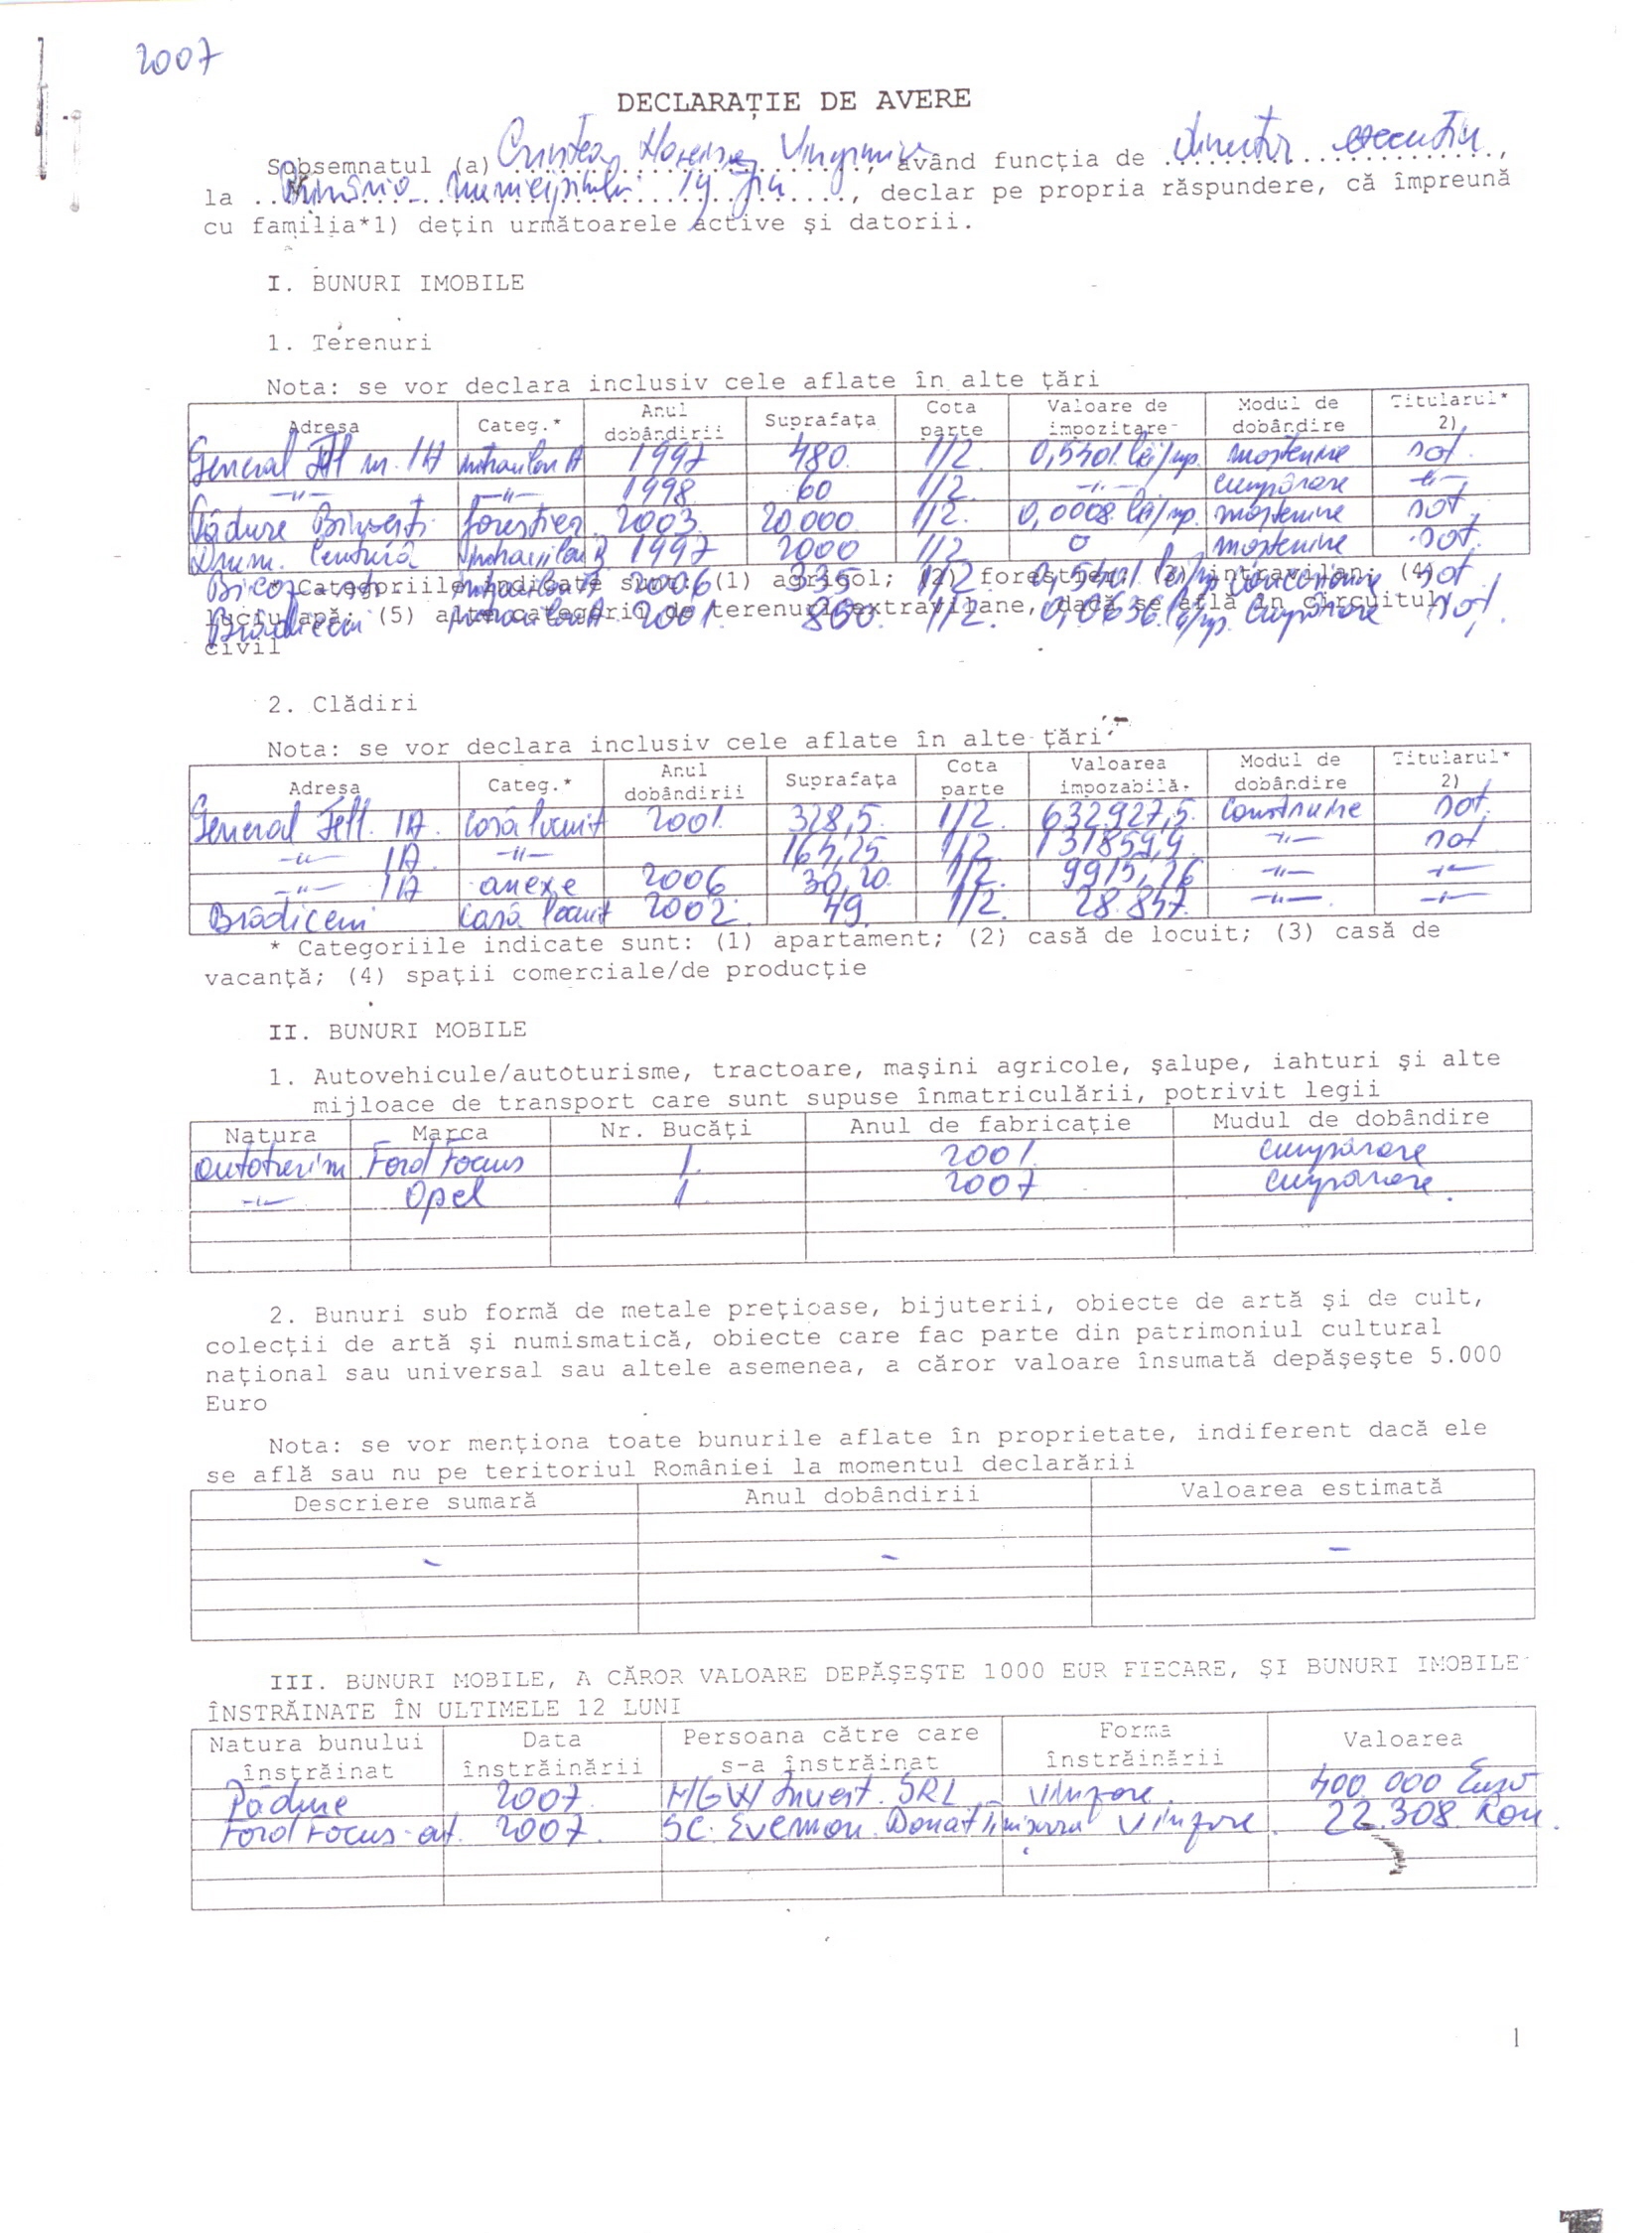 2007
DECLARAŢIE DE AVERE
Sobsemnatul (a) Cristea, având funcţia de director executiv,
la Primăria municipiului Tg Jiu, declar pe propria răspundere, că împreună
cu familia*1) deţin următoarele active şi datorii.
I. BUNURI IMOBILE
1. Terenuri
Nota: se vor declara inclusiv cele aflate în alte ţări
Adresa Categ.* Anul dobândirii Suprafaţa Cota parte Valoare de impozitare Modul de dobândire Titularul* 2)
General nr. 1A intravilan A 1997 480 1/2 0,5401 lei/mp. moştenire soţ.
-"- -"- 1998 60 1/2 -"- cumpărare -"-
Pădure forestier 2003 20.000 1/2. 0,0008 lei/mp. moştenire soţ.
Drum. Centură intravilan B 1997 2000 1/2 0 moştenire soţ.
intravilan 2006 335 1/2 0,5401 lei/mp soţ
*Categoriile indicate sunt: (1) agricol; (2) forestier; (3) intravilan; (4)
luciu apă; (5) alte categorii de terenuri extravilane, dacă se află în circuitul
Brădiceni intravilan A 2001. 800. 1/2. 0,0636 lei/mp. cumpărare soţ.
civil
2. Clădiri
Nota: se vor declara inclusiv cele aflate în alte ţări
Adresa Categ.* Anul dobândirii Suprafaţa Cota parte Valoarea impozabilă. Modul de dobândire Titularul* 2)
General 1A. casă locuit 2001. 328,5. 1/2. 632927,5. construire soţ.
-"- 1A. -"- 164,25 1/2 131859,9 -"- soţ
-"- 1A anexe 2006 30,20. 1/2. 9915,26 -"- -"-
Brădiceni casă locuit 2002. 49. 1/2. 28.847. -"- -"-
* Categoriile indicate sunt: (1) apartament; (2) casă de locuit; (3) casă de
vacanţă; (4) spaţii comerciale/de producţie
II. BUNURI MOBILE
1. Autovehicule/autoturisme, tractoare, maşini agricole, şalupe, iahturi şi alte
mijloace de transport care sunt supuse înmatriculării, potrivit legii
Natura Marca Nr. Bucăţi Anul de fabricaţie Mudul de dobândire
autoturism Ford Focus 1. 2001. cumpărare
-"- Opel 1. 2007 cumpărare.
2. Bunuri sub formă de metale preţioase, bijuterii, obiecte de artă şi de cult,
colecţii de artă şi numismatică, obiecte care fac parte din patrimoniul cultural
naţional sau universal sau altele asemenea, a căror valoare însumată depăşeşte 5.000
Euro
Nota: se vor menţiona toate bunurile aflate în proprietate, indiferent dacă ele
se află sau nu pe teritoriul României la momentul declarării
Descriere sumară Anul dobândirii Valoarea estimată
- - -
III. BUNURI MOBILE, A CĂROR VALOARE DEPĂŞEŞTE 1000 EUR FIECARE, ŞI BUNURI IMOBILE
ÎNSTRĂINATE ÎN ULTIMELE 12 LUNI
Natura bunului înstrăinat Data înstrăinării Persoana către care s-a înstrăinat Forma înstrăinării Valoarea
Pădure 2007. MGW Invest. SRL vînzare. 400.000 Euro
Ford Focus 2007. SC. vînzare. 22.308. Ron.
1